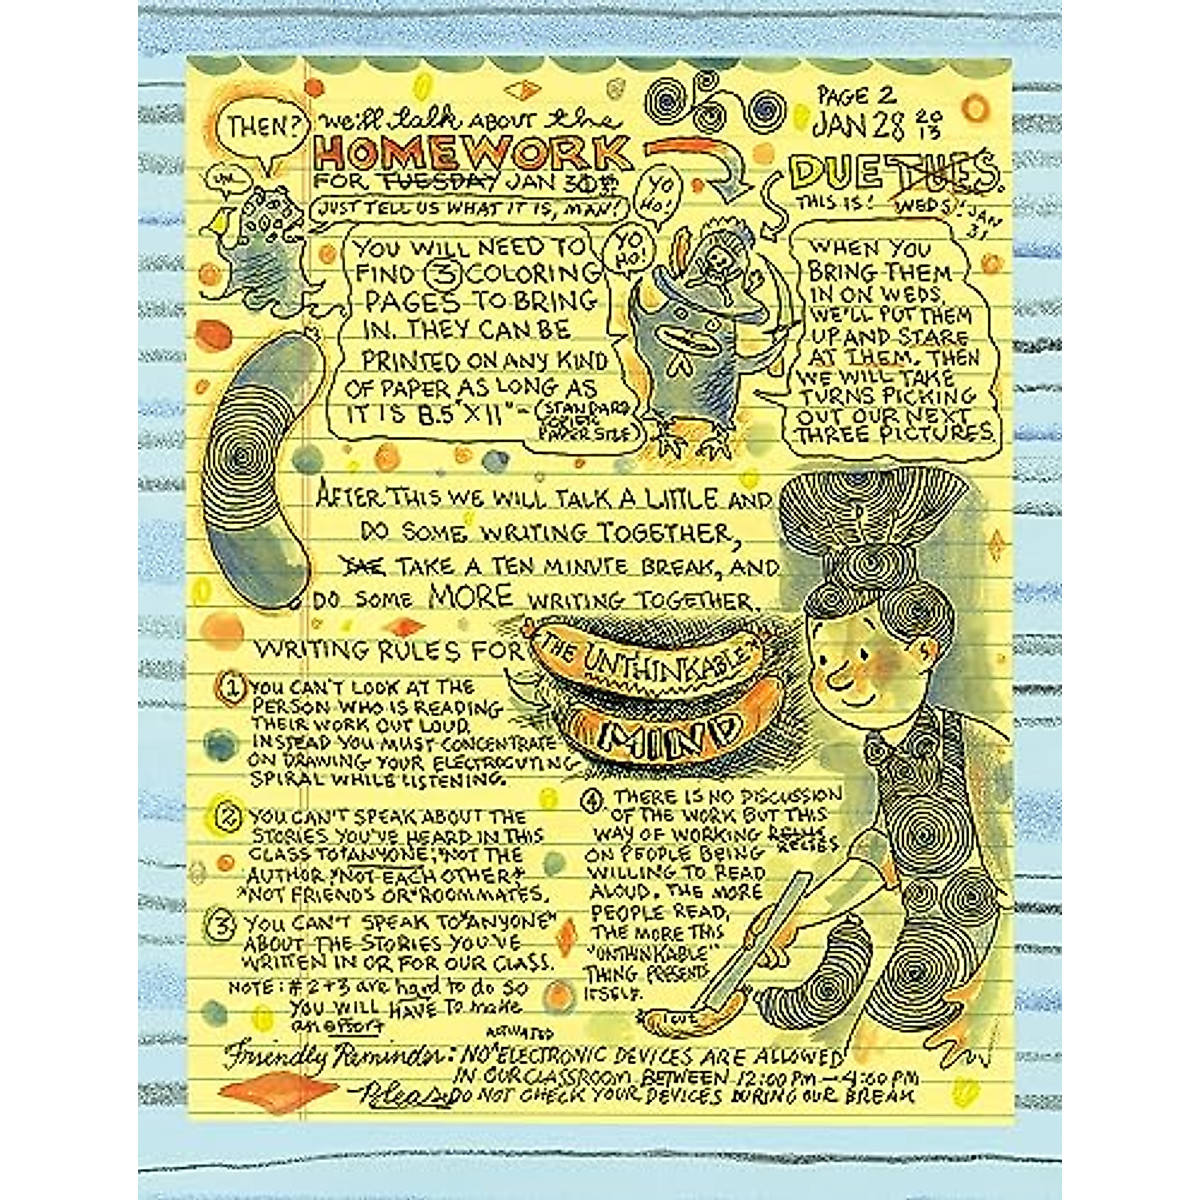 THEN?
we'll talk ABOUT the
HOMEWORK
FOR TUESDAY JAN
JUST TELL US WHAT IT IS, MAN!
PAGE 2
JAN 28 2013
DUE TUES.
THIS IS! WEDS! JAN
31
YO HO!
YO HO!
YOU WILL NEED TO
FIND 3 COLORING
PAGES TO BRING
IN. THEY CAN BE
PRINTED ON ANY KIND
OF PAPER AS LONG AS
IT IS 8.5"X11"- (STANDARD
PAPER SIZE)
WHEN YOU
BRING THEM
IN ON WEDS.
WE'LL PUT THEM
UP AND STARE
AT THEM. THEN
WE WILL TAKE
TURNS PICKING
OUT OUR NEXT
THREE PICTURES.
AFTER THIS WE WILL TALK A LITTLE AND
DO SOME WRITING TOGETHER,
TAKE A TEN MINUTE BREAK, AND
DO SOME MORE WRITING TOGETHER.
WRITING RULES FOR
THE UNTHINKABLE
MIND
1 YOU CAN'T LOOK AT THE
PERSON WHO IS READING
THEIR WORK OUT LOUD.
INSTEAD YOU MUST CONCENTRATE
ON DRAWING YOUR ELECTROCUTING
SPIRAL WHILE LISTENING.
2 YOU CAN'T SPEAK ABOUT THE
STORIES YOU'VE HEARD IN THIS
CLASS TO *ANYONE*, *NOT THE
AUTHOR *NOT EACH OTHER*
*NOT FRIENDS OR *ROOMMATES.
3 YOU CAN'T SPEAK TO "ANYONE"
ABOUT THE STORIES YOU'VE
WRITTEN IN OR FOR OUR CLASS.
NOTE: #2+3 are hard to do so
YOU WILL HAVE To make
an effort
4 THERE IS NO DISCUSSION
OF THE WORK BUT THIS
WAY OF WORKING RELIES
ON PEOPLE BEING
WILLING TO READ
ALOUD. THE MORE
PEOPLE READ,
THE MORE THIS
"UNTHINKABLE"
THING PRESENTS
ITSELF.
I CUT
Friendly Reminder: NO ACTIVATED ELECTRONIC DEVICES ARE ALLOWED
IN OUR CLASSROOM BETWEEN 12:00 PM - 4:00 PM
Please DO NOT CHECK YOUR DEVICES DURING OUR BREAK